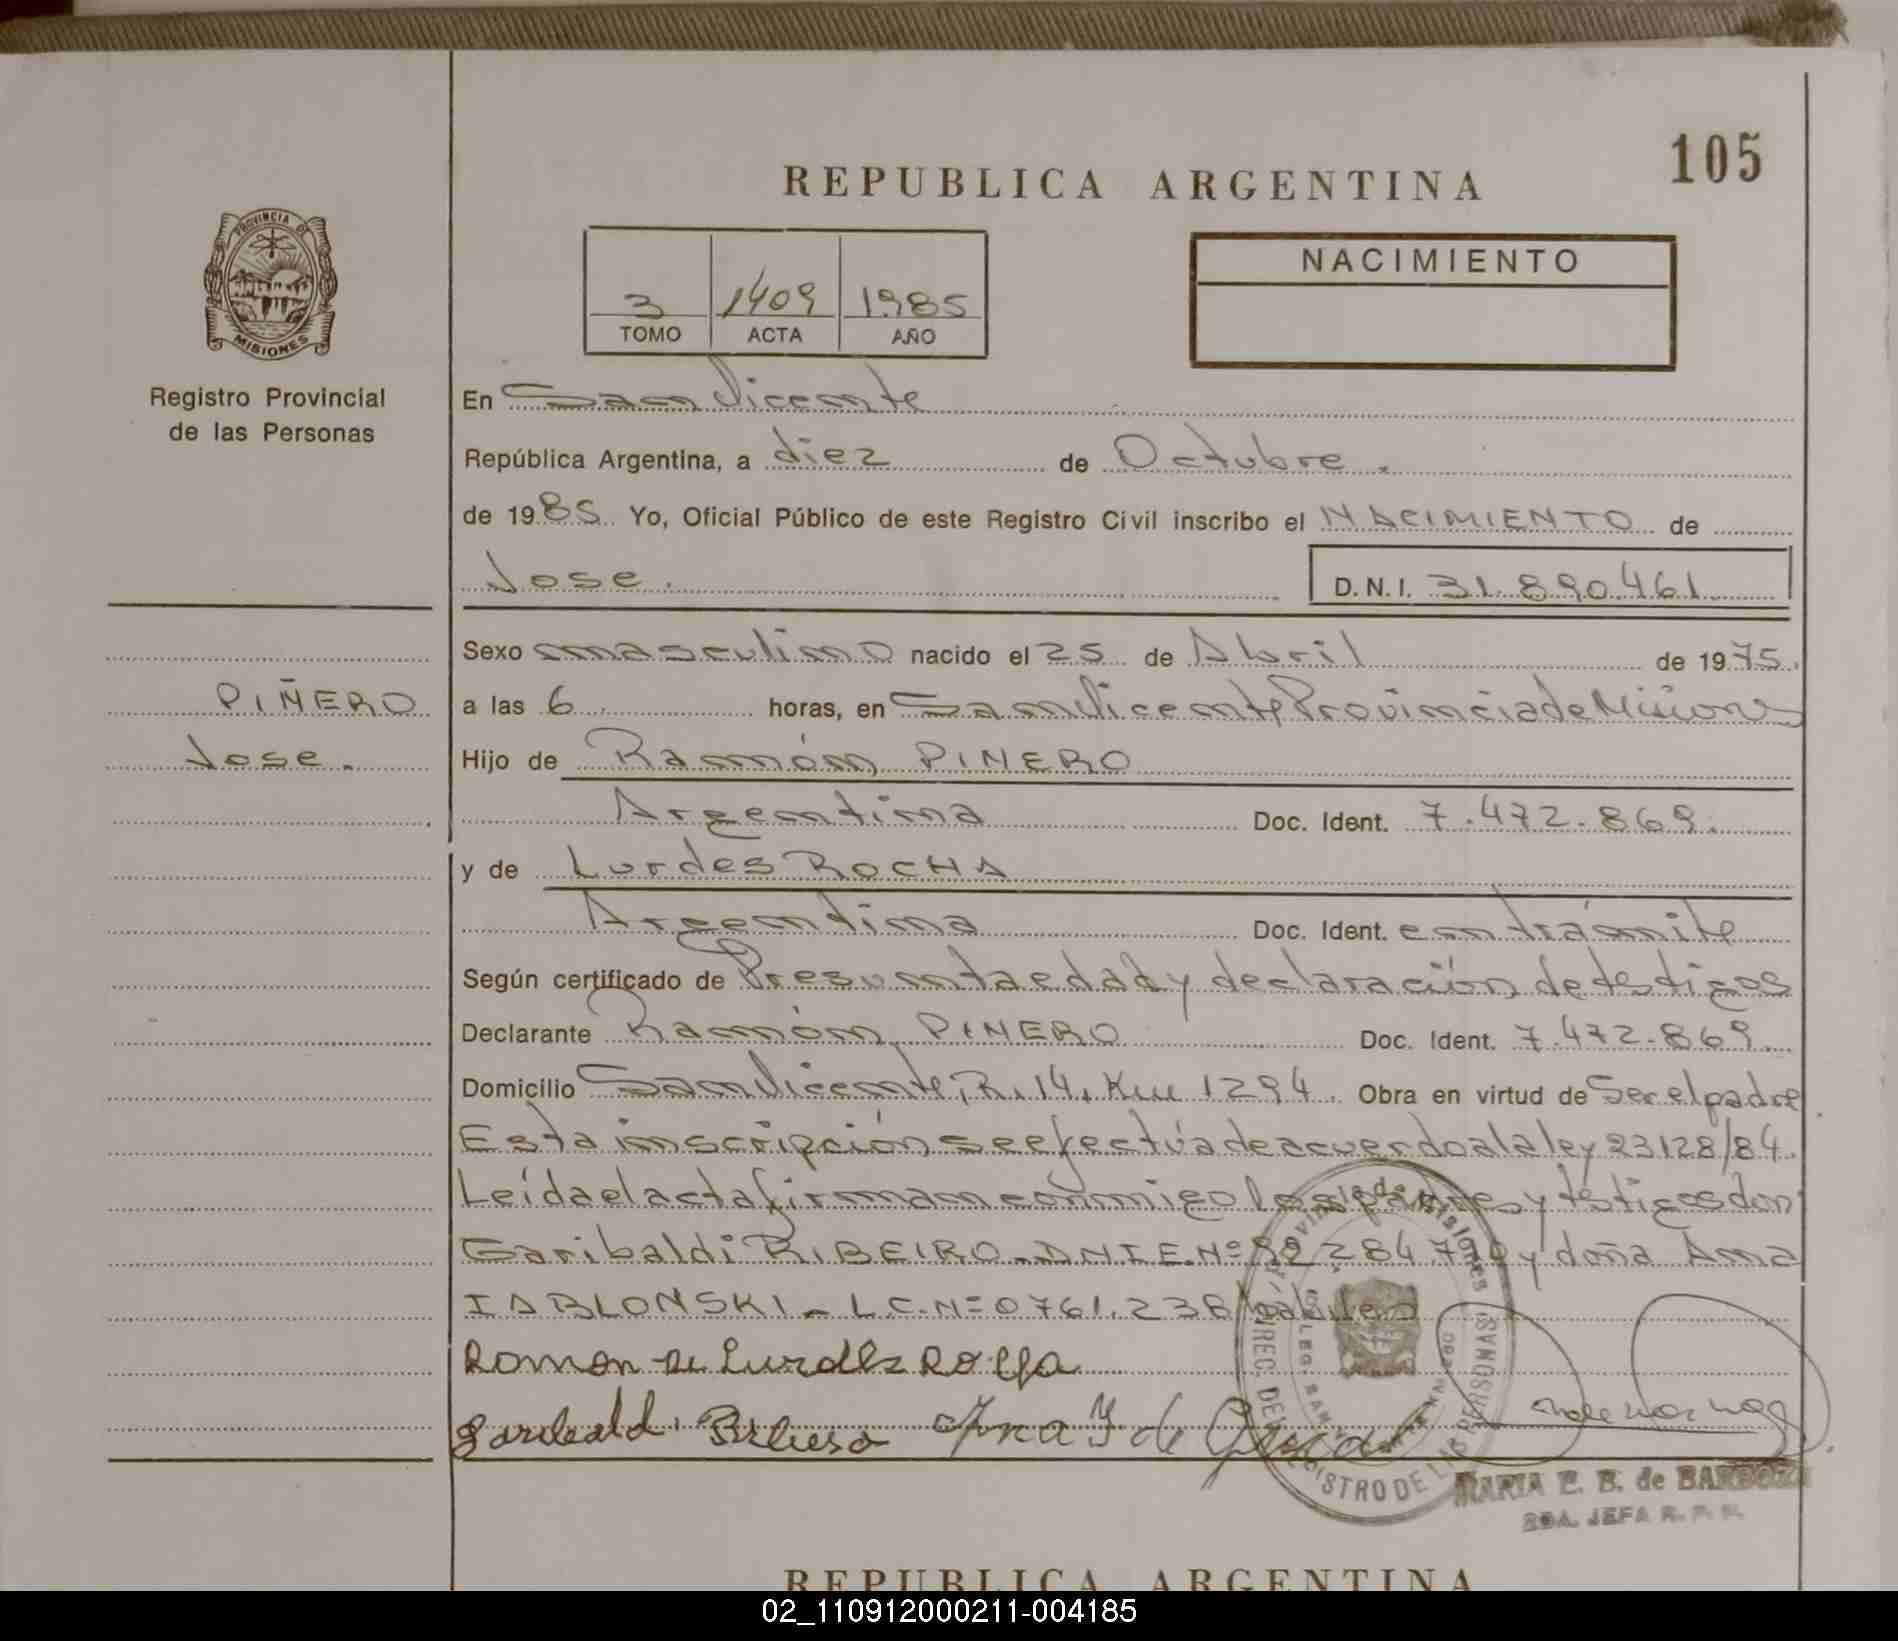 105
REPUBLICA ARGENTINA
PROVINCIA DE
MISIONES
Registro Provincial
de las Personas
3 1409 1985
TOMO ACTA AÑO
NACIMIENTO
En San Vicente
República Argentina, a diez de Octubre.
de 1985 Yo, Oficial Público de este Registro Civil inscribo el NACIMIENTO de
Jose. D.N.I. 31.890.461
Sexo masculino nacido el 25 de Abril de 1975.
PIÑERO
Jose.
a las 6 horas, en San Vicente Provincia de Misiones
Hijo de Ramón PIÑERO
Argentina Doc. Ident. 7.472.869.
y de Lurdes ROCHA
Argentina Doc. Ident. en trámite
Según certificado de Presunta edad y declaración de testigos
Declarante Ramón PIÑERO Doc. Ident. 7.472.869.
Domicilio San Vicente, R. 14, Km 1294. Obra en virtud de Ser el padre
Esta inscripción se efectúa de acuerdo a la ley 23128/84.
Leída el acta firman conmigo los padres y testigos don
Garibaldi RIBEIRO - DNIE Nº y doña Ana
IABLONSKI - L.C. Nº 0.761.238
Garibaldi Ana Y de
Provincia de Misiones
DIREC. DEL REGISTRO DE LAS PERSONAS
MARIA E. B. de BARBOZA
JEFA R. P. P.
REPUBLICA ARGENTINA
02_110912000211-004185